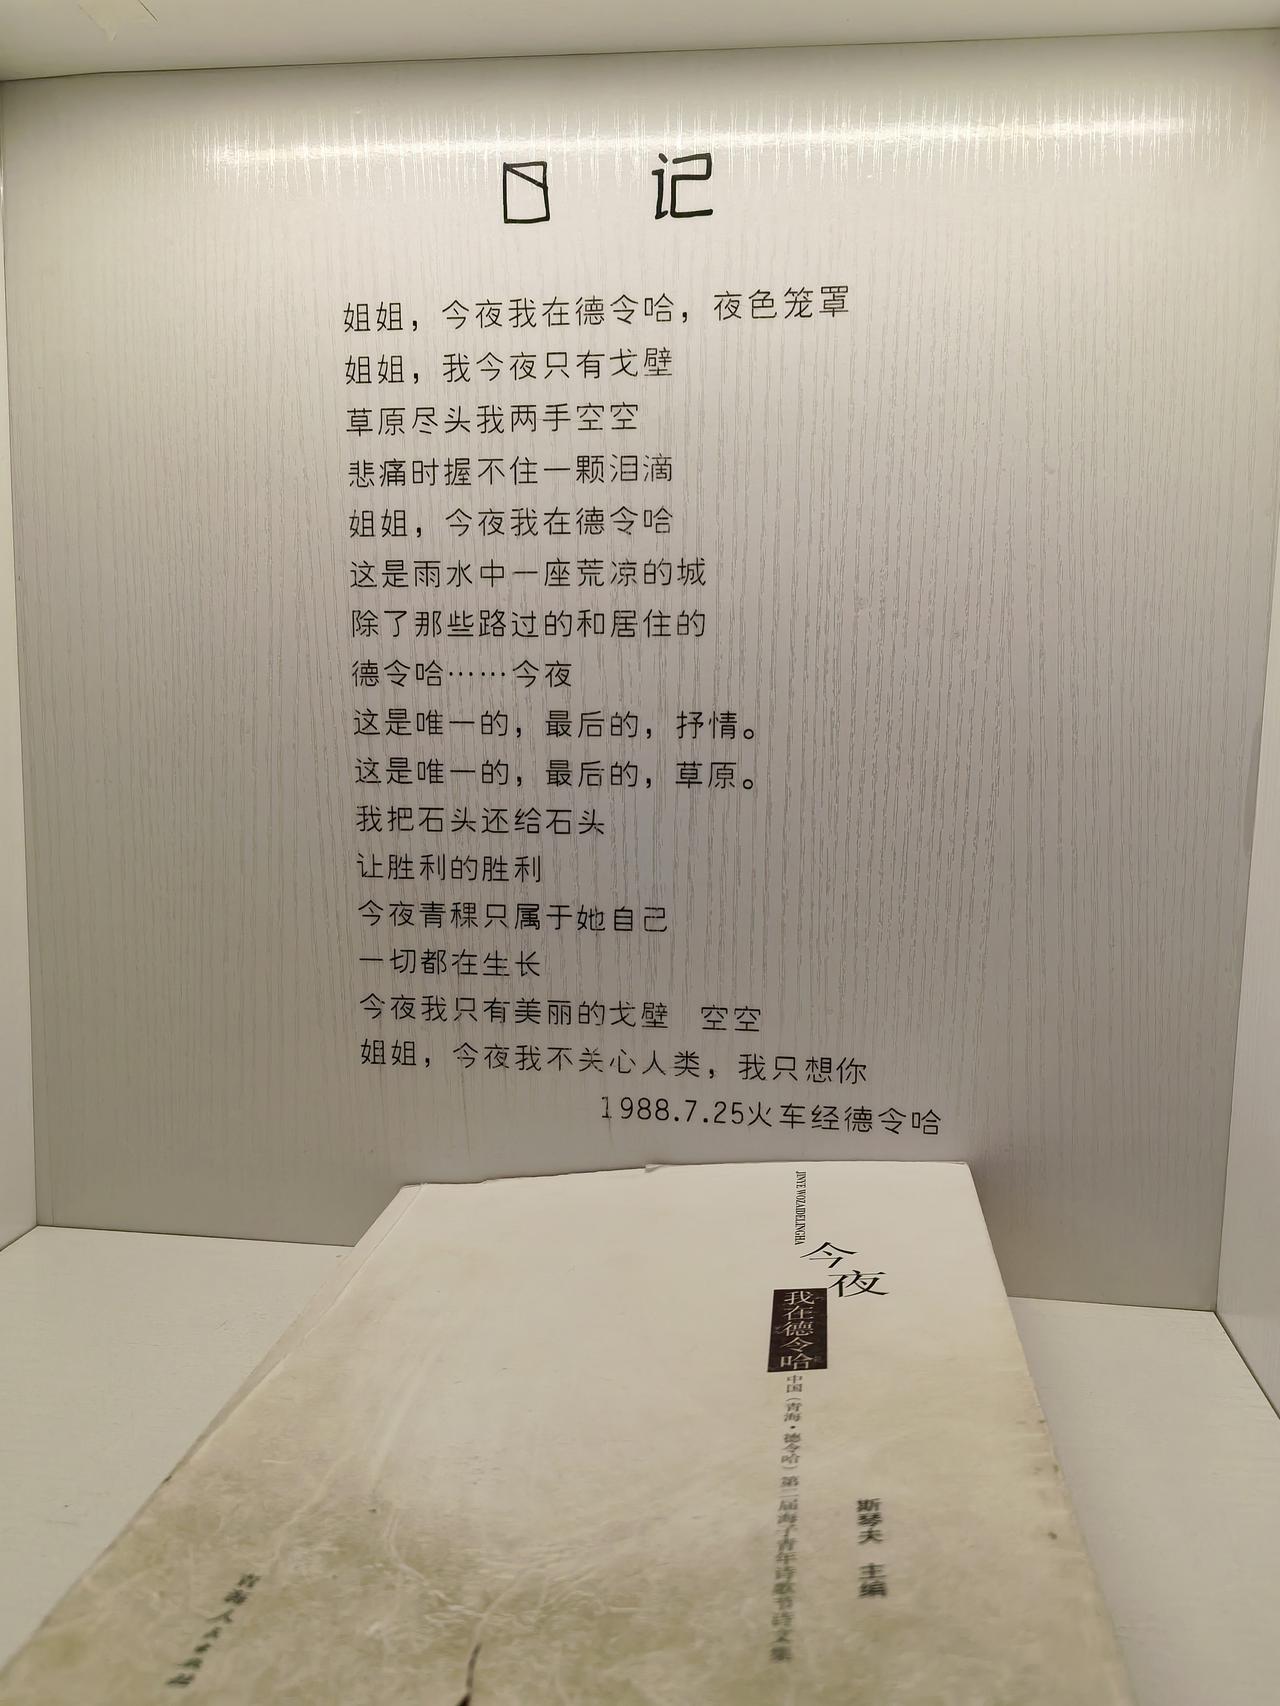 日 记
姐姐，今夜我在德令哈，夜色笼罩
姐姐，我今夜只有戈壁
草原尽头我两手空空
悲痛时握不住一颗泪滴
姐姐，今夜我在德令哈
这是雨水中一座荒凉的城
除了那些路过的和居住的
德令哈……今夜
这是唯一的，最后的，抒情。
这是唯一的，最后的，草原。
我把石头还给石头
让胜利的胜利
今夜青稞只属于她自己
一切都在生长
今夜我只有美丽的戈壁 空空
姐姐，今夜我不关心人类，我只想你
1988.7.25火车经德令哈
JINYE WOZAIDELINGHA
今夜
我在德令哈
中国（青海·德令哈）第二届海子青年诗歌节诗文集
斯琴夫 主编
青海人民出版社